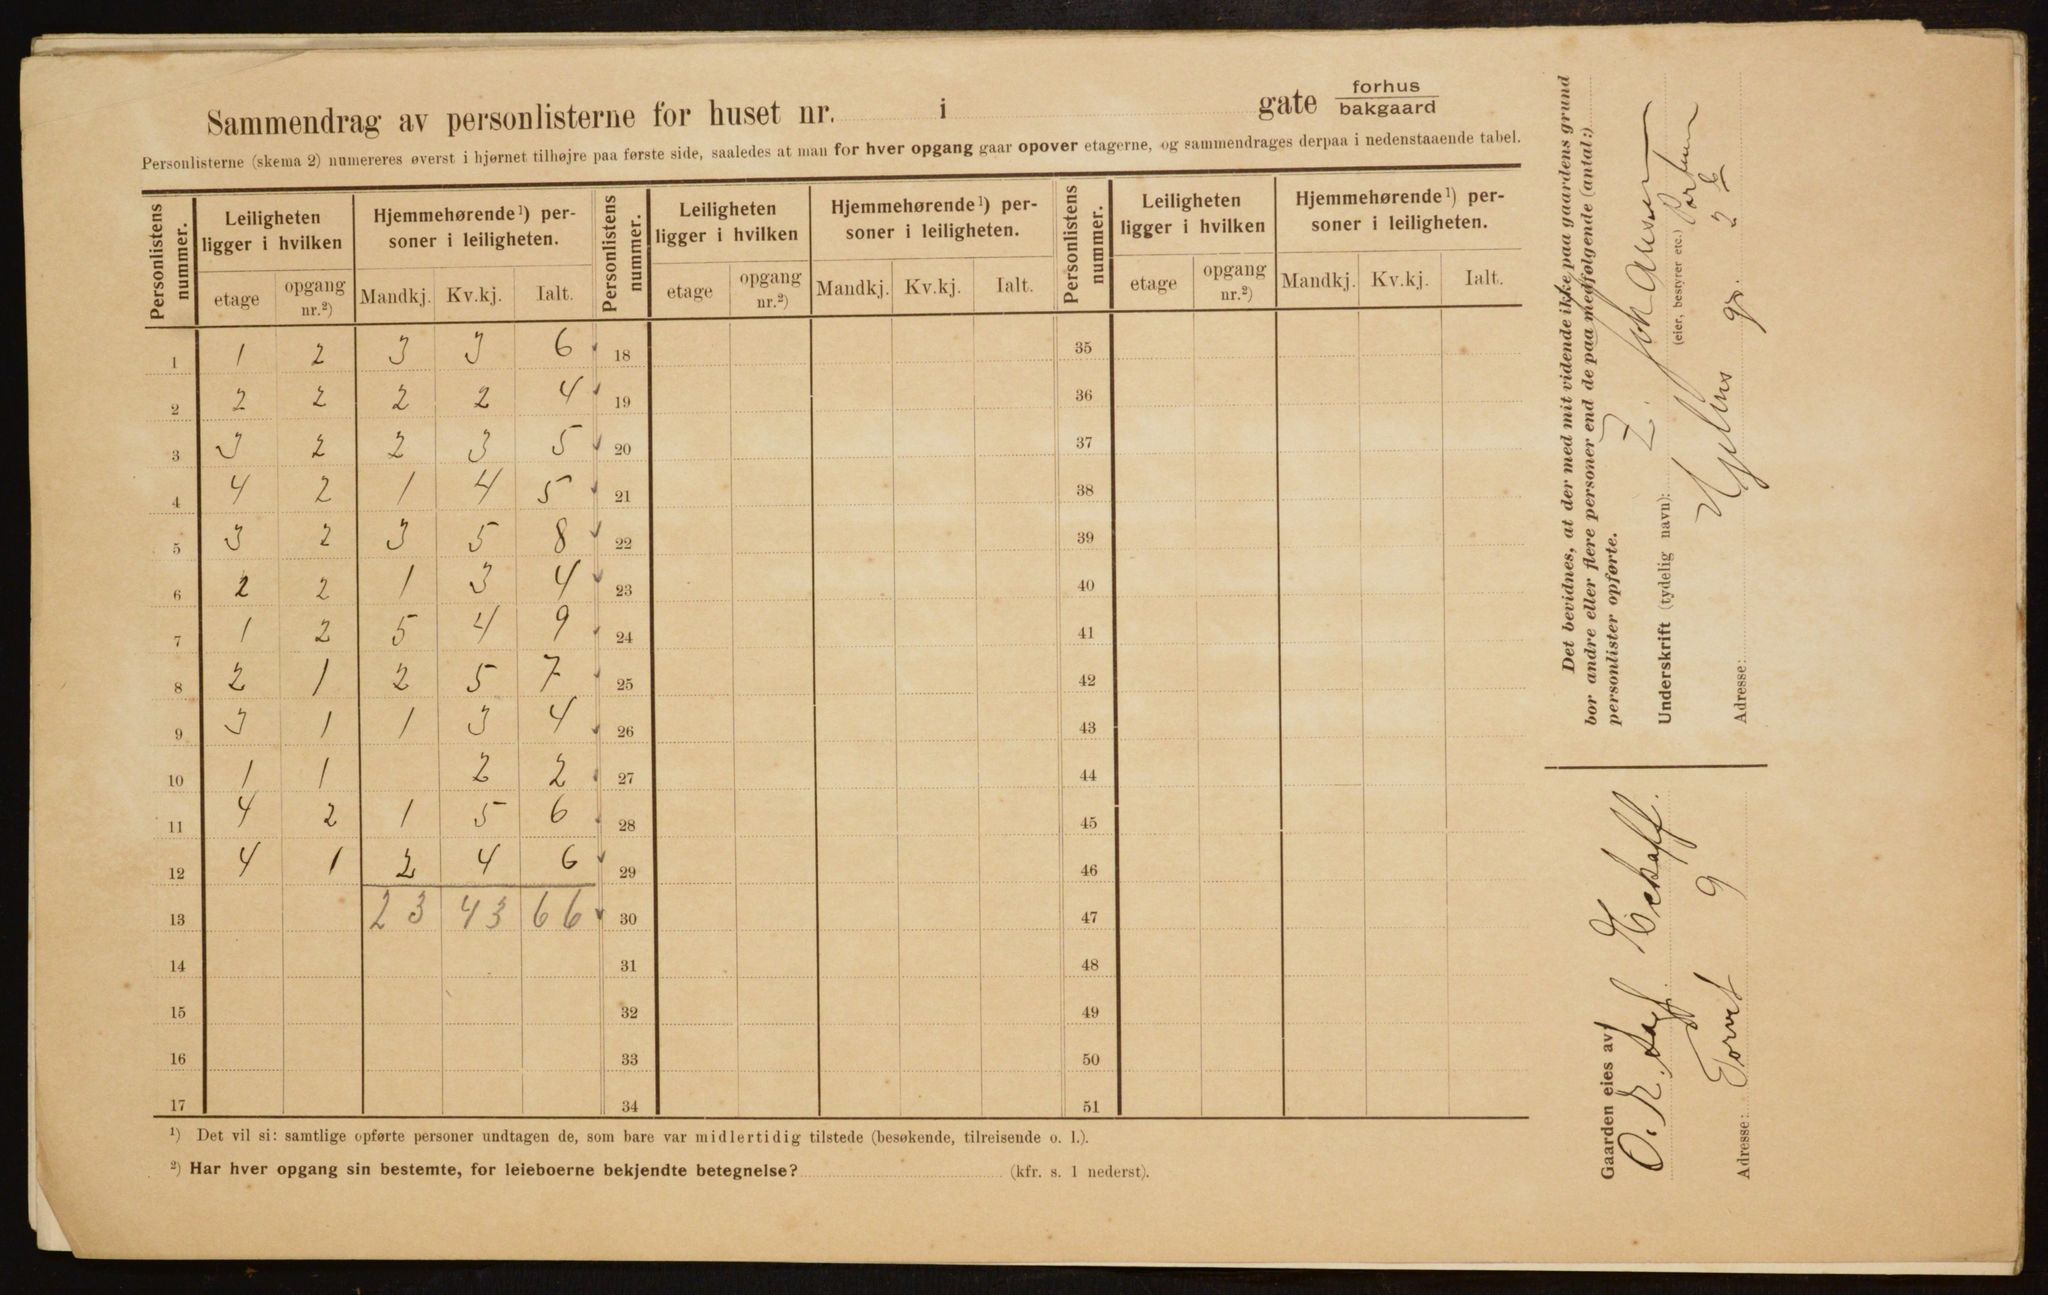 Sammendrag av personlisterne for huset nr. i gate forhus
bakgaard
Personlisterne (skema 2) numereres øverst i hjørnet tilhøjre paa første side, saaledes at man for hver opgang gaar opover etagerne, og sammendrages derpaa i nedenstaaende tabel.
Personlistens nummer. Leiligheten ligger i hvilken Hjemmehørende¹) personer i leiligheten. Personlistens nummer. Leiligheten ligger i hvilken Hjemmehørende¹) personer i leiligheten. Personlistens nummer. Leiligheten ligger i hvilken Hjemmehørende¹) personer i leiligheten.
etage opgang nr.²) Mandkj. Kv.kj. Ialt. etage opgang nr.²) Mandkj. Kv.kj. Ialt. etage opgang nr.²) Mandkj. Kv.kj. Ialt.
1 1 2 3 3 6 18 35
2 2 2 2 2 4 19 36
3 3 2 2 3 5 20 37
4 4 2 1 4 5 21 38
5 3 2 3 5 8 22 39
6 2 2 1 3 4 23 40
7 1 2 5 4 9 24 41
8 2 1 2 5 7 25 42
9 3 1 1 3 4 26 43
10 1 1 2 2 27 44
11 4 2 1 5 6 28 45
12 4 1 2 4 6 29 46
13 23 43 66 30 47
14 31 48
15 32 49
16 33 50
17 34 51
¹) Det vil si: samtlige opførte personer undtagen de, som bare var midlertidig tilstede (besøkende, tilreisende o. l.).
²) Har hver opgang sin bestemte, for leieboerne bekjendte betegnelse? (kfr. s. 1 nederst).
Det bevidnes, at der med mit vidende ikke paa gaardens grund
bor andre eller flere personer end de paa medfølgende (antal:)
personlister opførte.
Underskrift (tydelig navn):
(eier, bestyrer etc.)
Adresse: gr. 2 b
Gaarden eies av
Adresse: Torvet 9